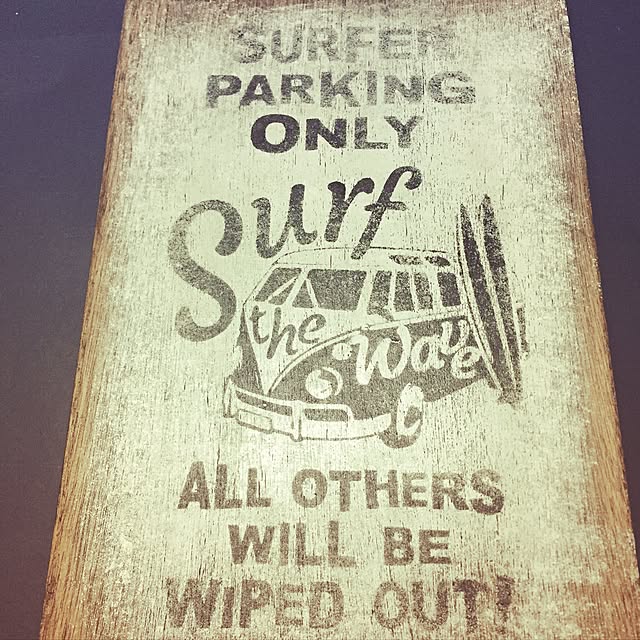 SURFER
PARKING
ONLY
Surf
the Wave
ALL OTHERS
WILL BE
WIPED OUT!